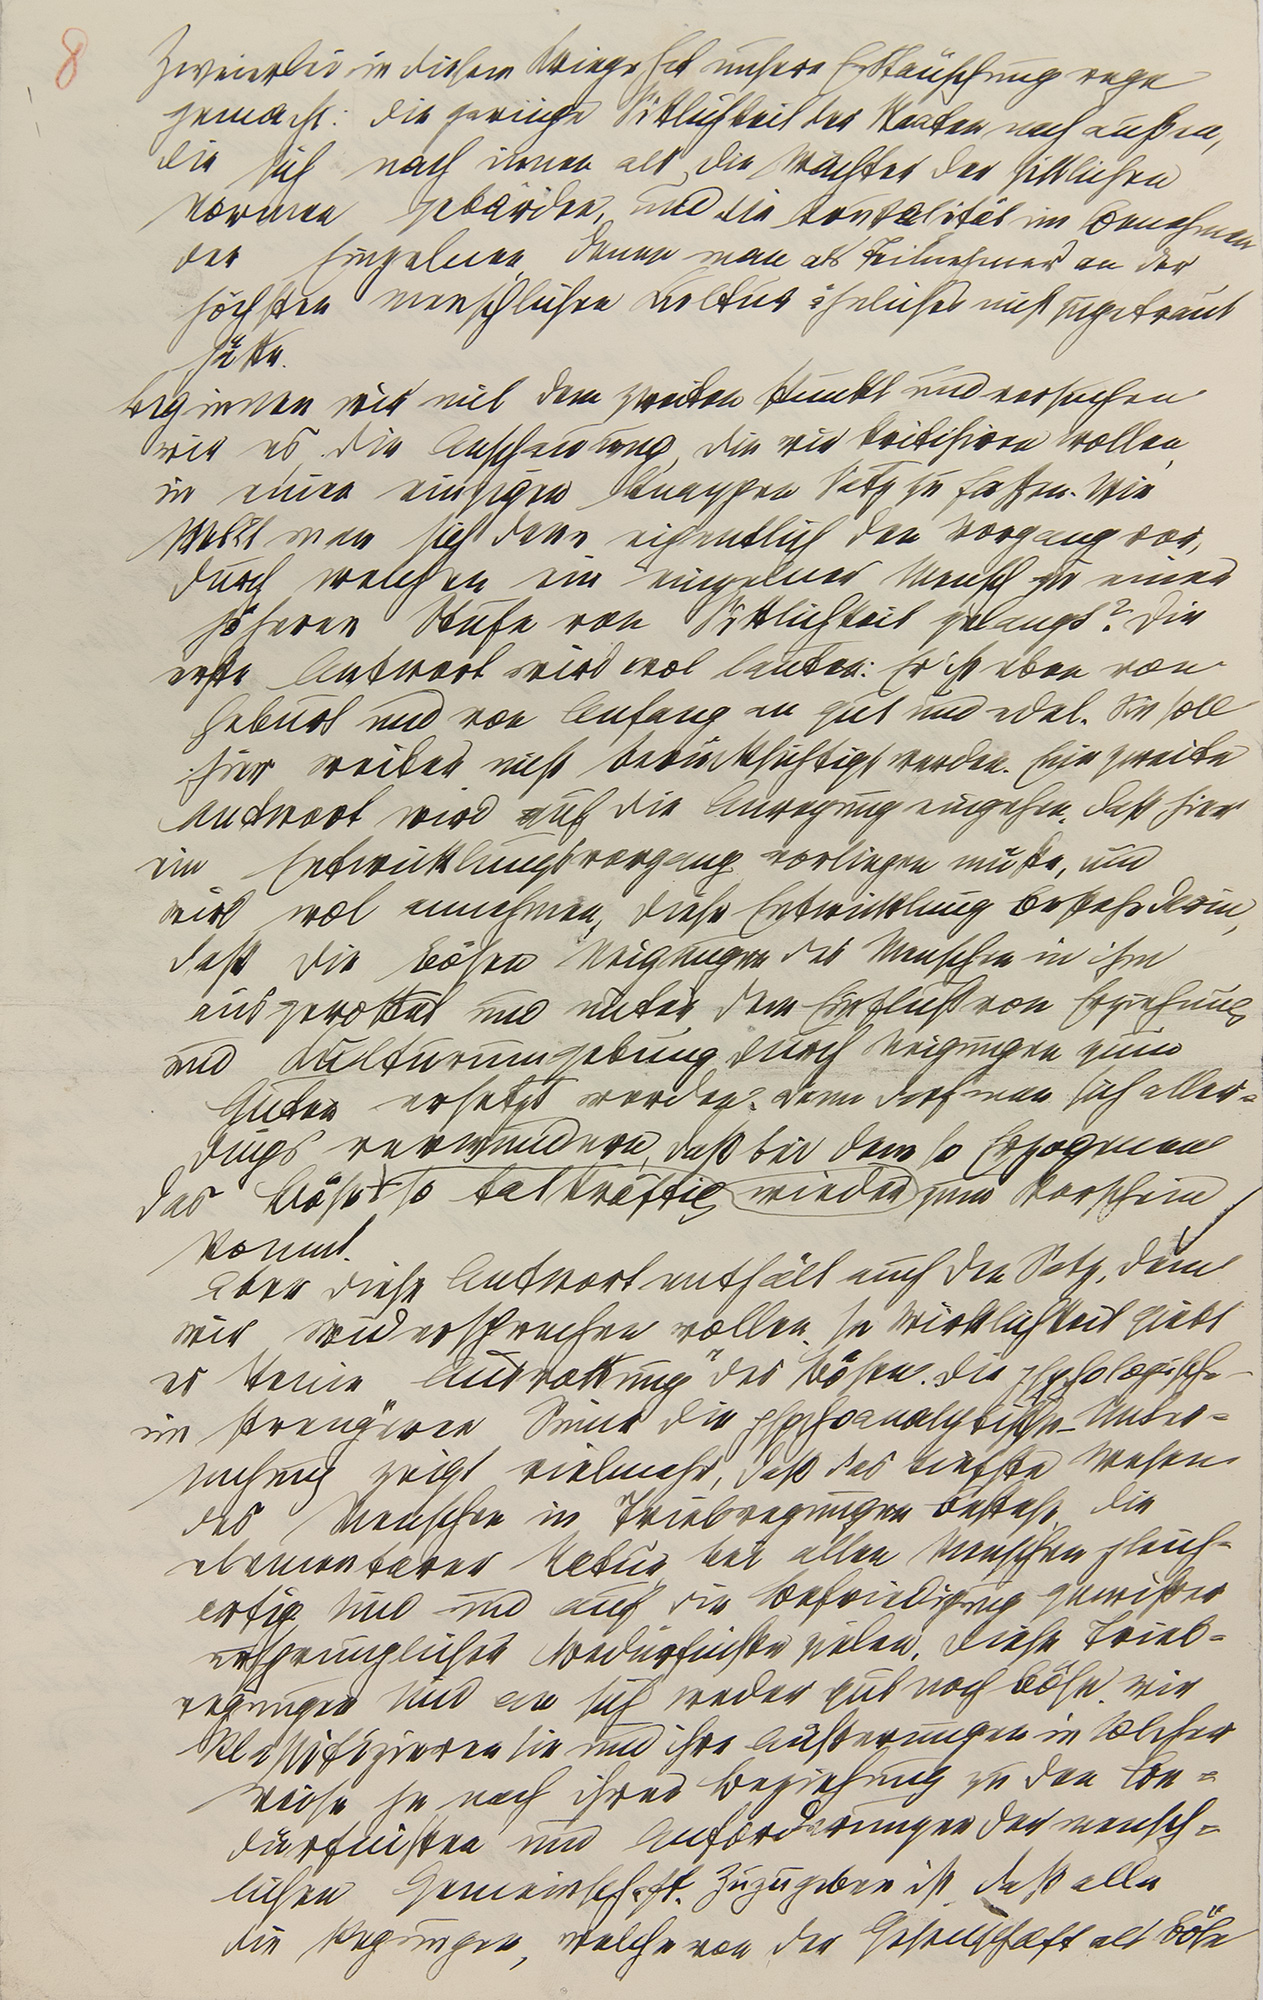 8
Zweierlei in diesem Kriege hat unsere Enttäuschung rege
gemacht: die geringe Sittlichkeit der Staaten nach außen,
die sich nach innen als die Wächter der sittlichen
Normen gebärden, und die Brutalität im Benehmen
der Einzelnen, denen man als Teilnehmer an der
höchsten menschlichen Kultur ähnliches nicht zugetraut
hätte.
Beginnen wir mit dem zweiten Punkt und versuchen
wir es, die Anschauung, die wir kritisiren wollen,
in einen einzigen knappen Satz zu fassen. Wie
stellt man sich denn eigentlich den Vorgang vor,
durch welchen ein einzelner Mensch zu einer
höheren Stufe von Sittlichkeit gelangt? Die
erste Antwort wird wol lauten: Er ist eben von
Geburt und von Anfang an gut und edel. Sie soll
hier weiter nicht berücksichtigt werden. Eine zweite
Antwort wird auf die Anregung eingehen, daß hier
ein Entwicklungsvorgang vorliegen müße, und
wird wol annehmen, diese Entwicklung bestehe darin,
daß die bösen Neigungen des Menschen in ihm
ausgerottet und unter dem Einfluß von Erziehung
und Kulturumgebung durch Neigungen zum
Guten ersetzt werden. Dann darf man sich aller-
dings verwundern, daß bei dem so Erzogenen
das Böse so tatkräftig wieder zum Vorschein
kommt.
Aber diese Antwort enthält auch den Satz, dem
wir widersprechen wollen. In Wirklichkeit giebt
es keine „Ausrottung“ des Bösen. Die psychologische –
im strengeren Sinne die psychoanalytische – Unter-
suchung zeigt vielmehr, daß das tiefste Wesen
des Menschen in Triebregungen besteht, die
elementarer Natur, bei allen Menschen gleich-
artig sind und auf die Befriedigung gewißer
ursprünglicher Bedürfniße zielen. Diese Trieb-
regungen sind an sich weder gut noch böse. Wir
klassifiziren sie und ihre Äußerungen in solcher
Weise je nach ihrer Beziehung zu den Be-
dürfnißen und Anforderungen der mensch-
lichen Gemeinschaft. Zuzugeben ist, daß alle
die Regungen, welche von der Gesellschaft als böse